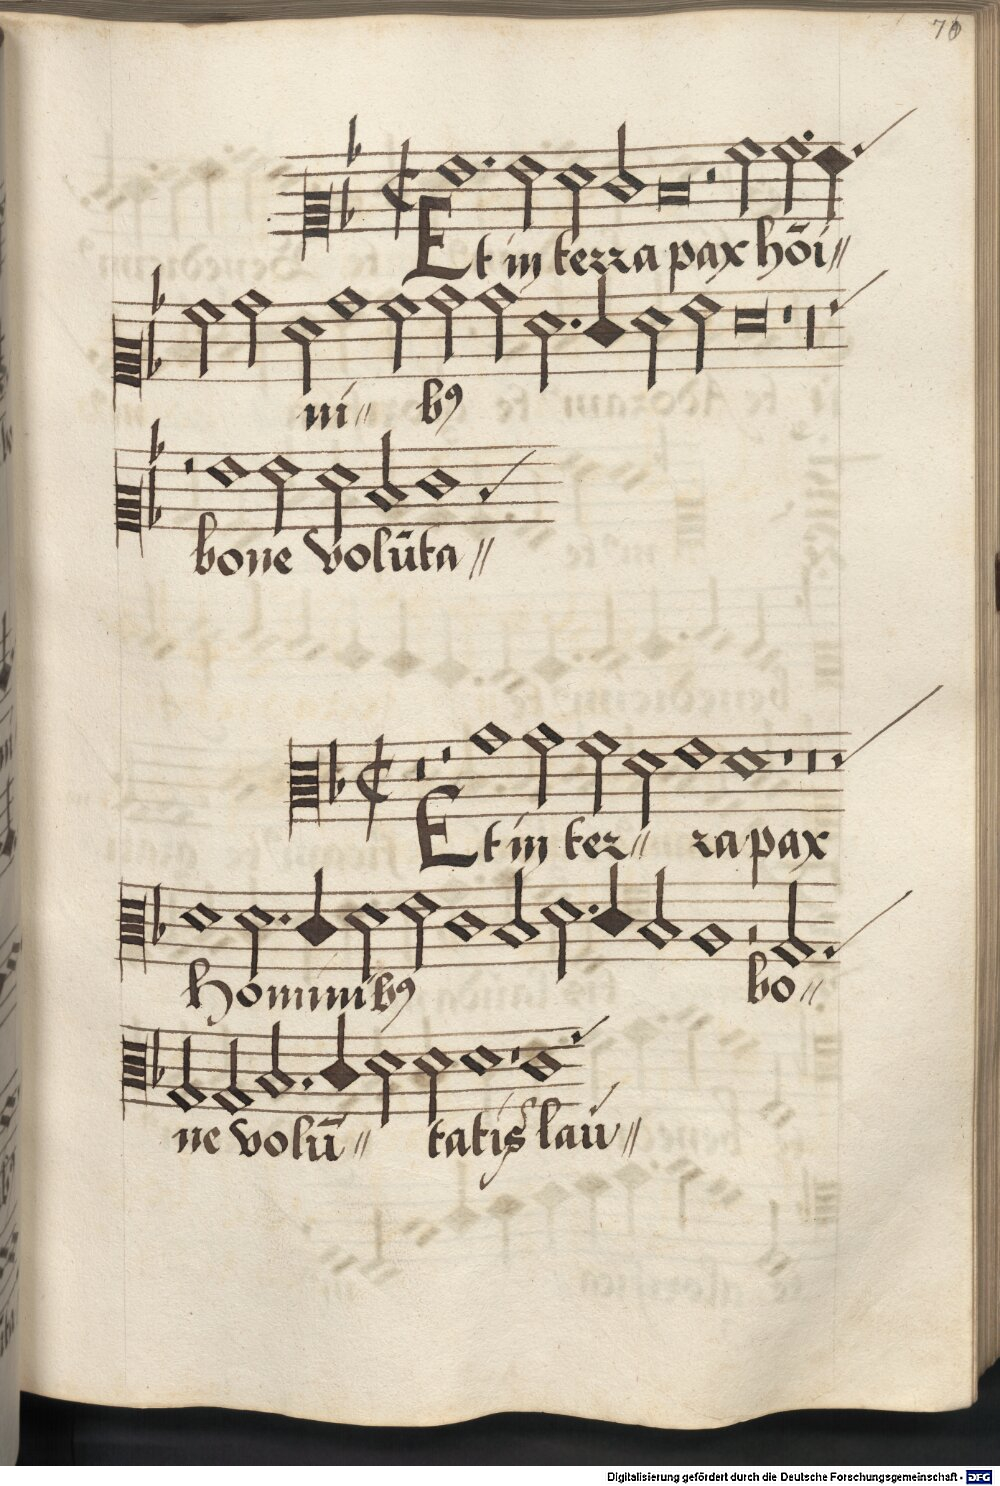 70
Et in terra pax hōi〃
ni〃 bꝰ
bone volūta〃
Et in ter〃 ra pax
Hominibꝰ bo〃
ne volū〃 tatis lau〃
Digitalisierung gefördert durch die Deutsche Forschungsgemeinschaft - DFG